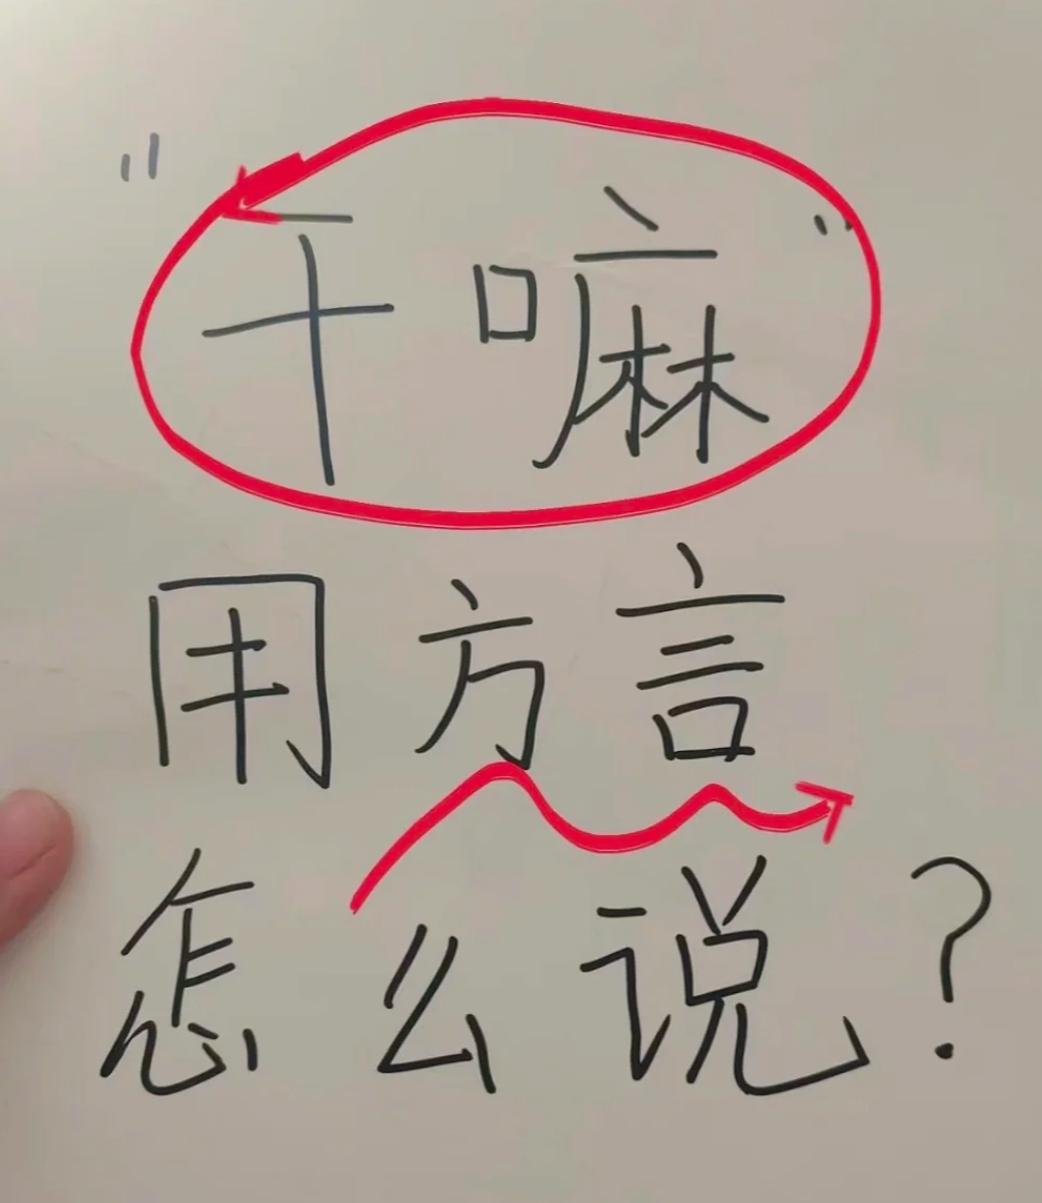 "干嘛"
用方言
怎么说?